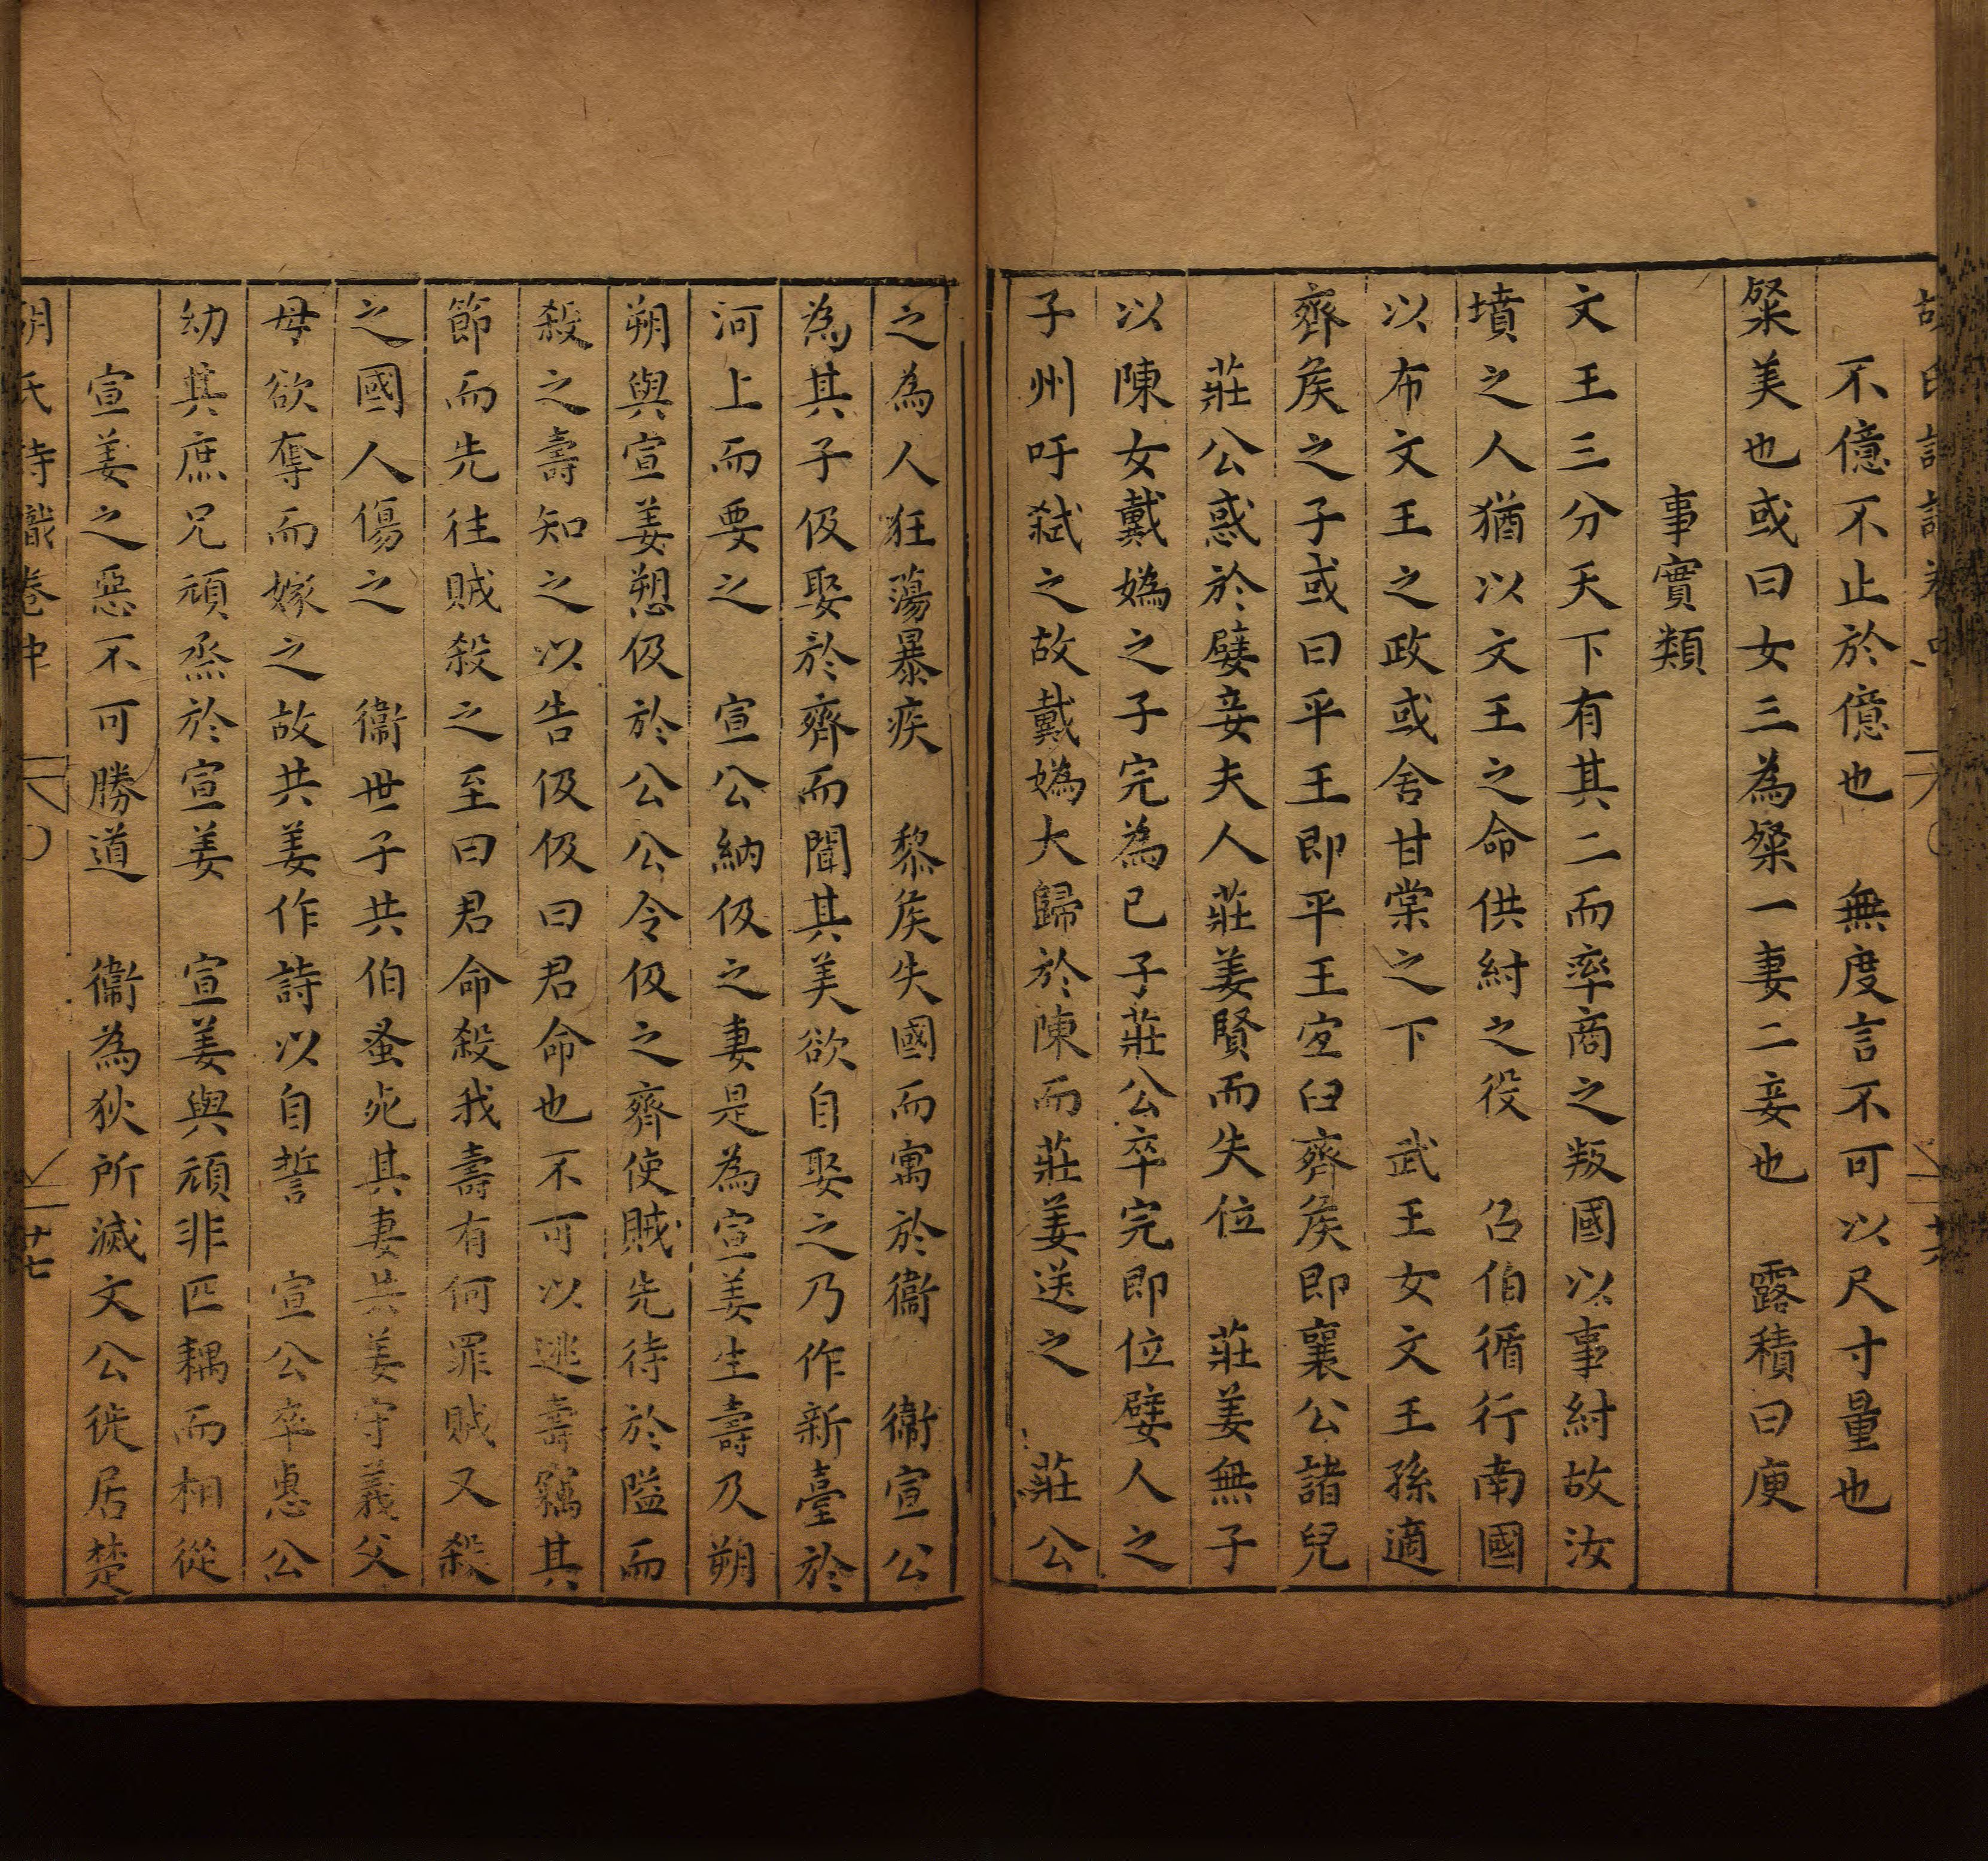 不億不止於億也　無度言不可以尺寸量也
粲美也或曰女三為粲一妻二妾也　露積曰庾
事實類
文王三分天下有其二而率商之叛國以事紂故汝
墳之人猶以文王之命供紂之役　召伯循行南國
以布文王之政或舍甘棠之下　武王女文王孫適
齊矦之子或曰平王即平王宜臼齊矦即襄公諸兒
莊公惑於嬖妾夫人莊姜賢而失位　莊姜無子
以陳女戴媯之子完為已子莊公卒完即位嬖人之
子州吁弑之故戴媯大歸於陳而莊姜送之　莊公
之為人狂蕩暴疾　黎矦失國而寓於衞　衞宣公
為其子伋娶於齊而聞其美欲自娶之乃作新臺於
河上而要之　宣公納伋之妻是為宣姜生壽及朔
朔與宣姜愬伋於公公令伋之齊使賊先待於隘而
殺之壽知之以告伋伋曰君命也不可以逃壽竊其
節而先往賊殺之至曰君命殺我壽有何罪賊又殺
之國人傷之　衞世子共伯蚤死其妻共姜守義父
母欲奪而嫁之故共姜作詩以自誓　宣公卒惠公
幼其庶兄頑烝於宣姜　宣姜與頑非匹耦而相從
宣姜之惡不可勝道　衞為狄所滅文公徙居楚
胡氏詩識卷中　廿七